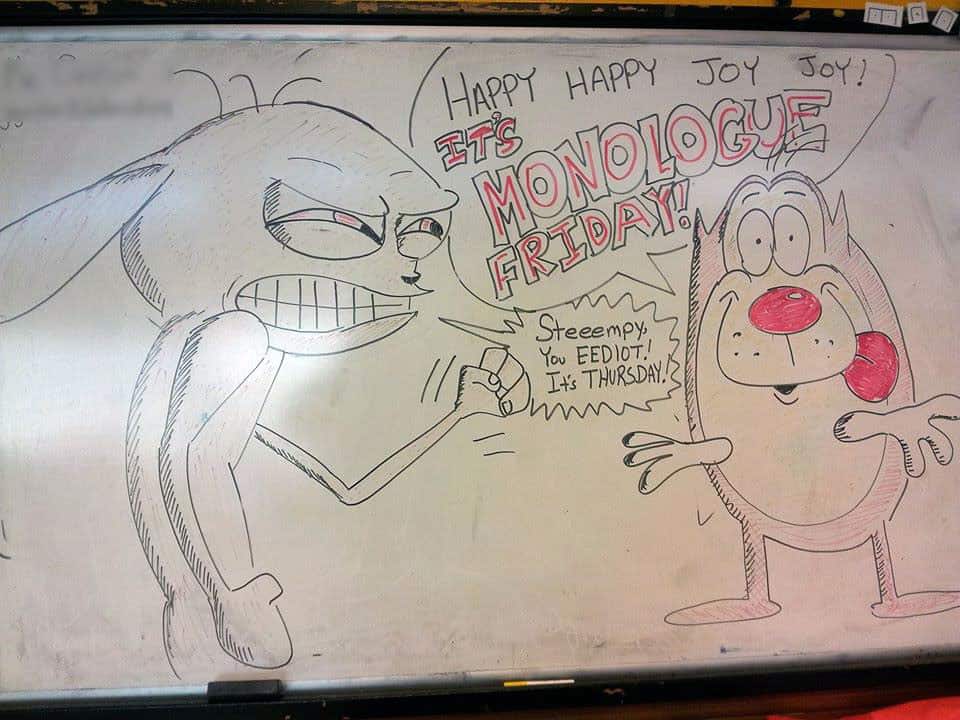 HAPPY HAPPY JOY JOY!
IT'S
MONOLOGUE
FRIDAY!
Steeeempy,
You EEDIOT!
It's THURSDAY!